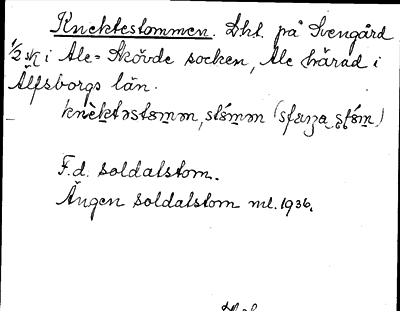 Knektestommen. Lht. på Svengård
1/2 sk i Ale-Skövde socken, Ale härad i
Älfsborgs län.
knèktəstəmən, stə́mən
F.d. soldatstom.
Ängen soldatstom ml. 1936.